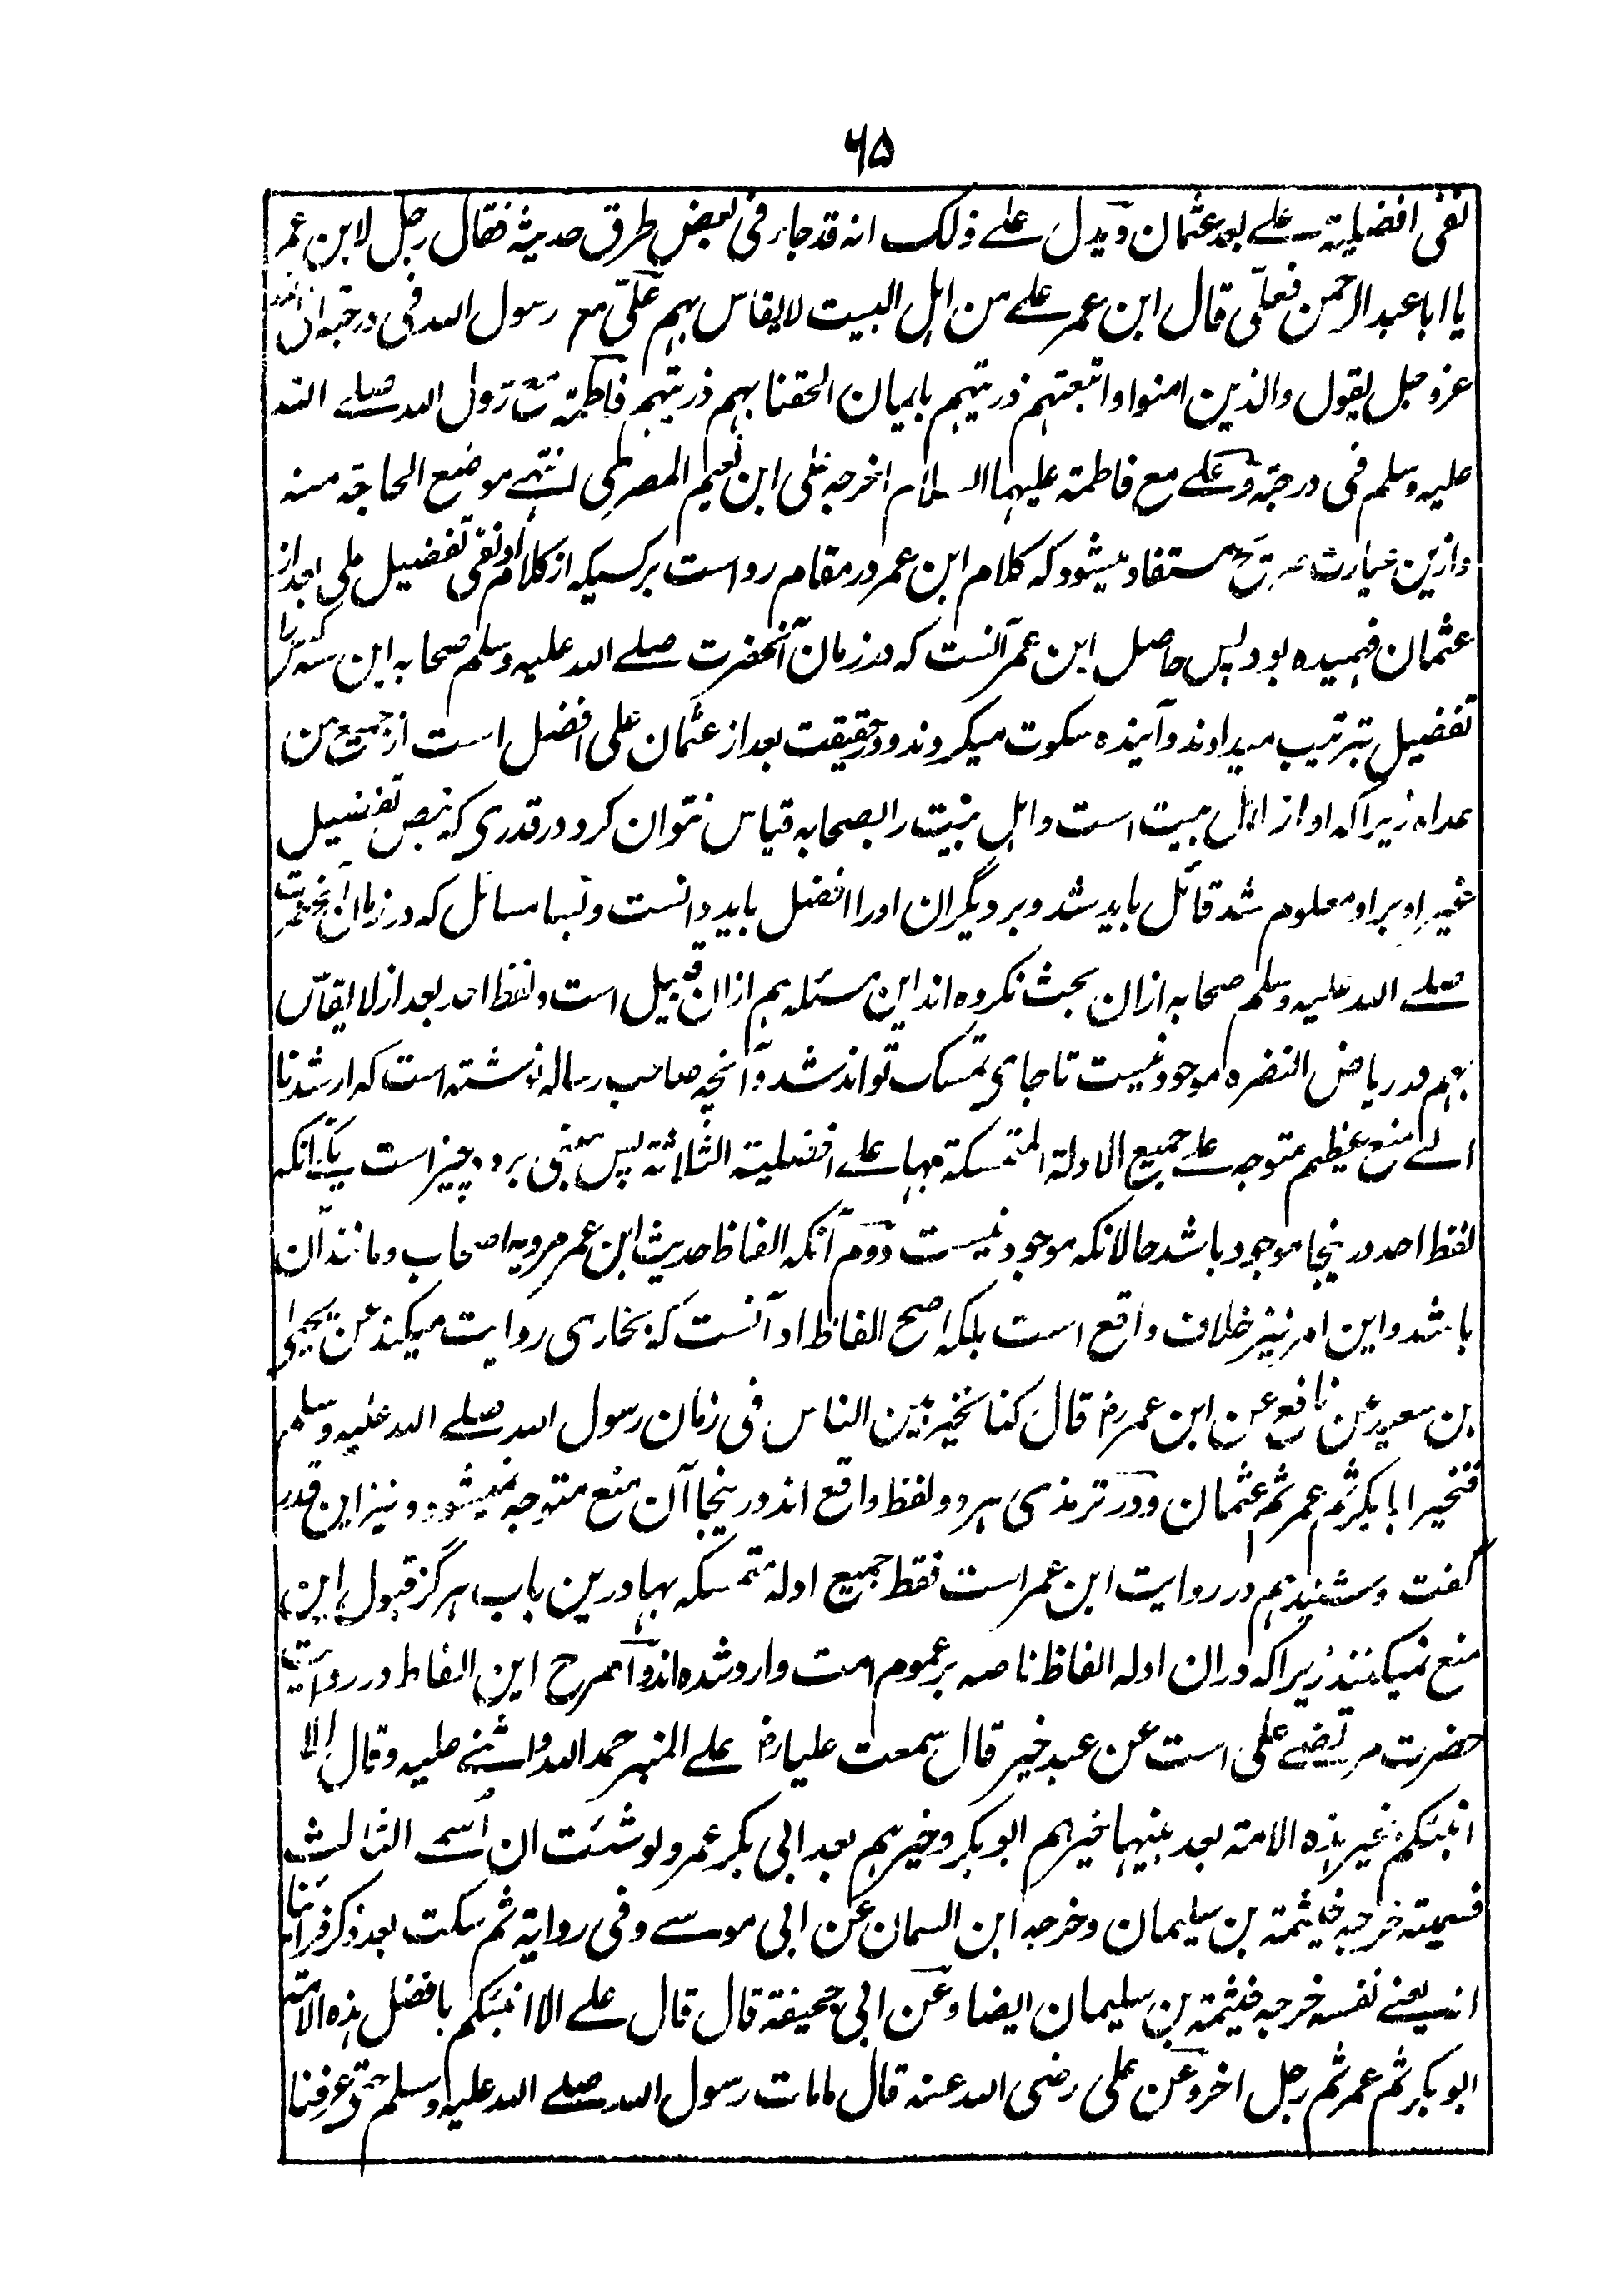 ۶۵
نفی افضلیتہ علے بعد عثمان ویدل علے ذلک انہ قد جاء فی بعض طرق حدیثہ فقال رجل لابن عمر
یا ابا عبد الرحمن فعلیّ قال ابن عمر علے من اہل البیت لا یقاس بہم علیّ مع رسول اللہ فی درجتہ ان اللہ
عز وجل یقول والذین امنوا واتبعتہم ذریتہم بایمان الحقنا بہم ذریتہم فاطمۃ مع رسول اللہ صلے اللہ
علیہ وسلم فی درجتہ وعلے مع فاطمۃ علیہما السلام اخرجہ علی ابن نعیم المصری انتہے موضع الحاجۃ منہ
وازین عبارت مستفاد میشود کہ کلام ابن عمر در مقام رد است بر کسیکہ از کلام او نفی تفضیل علی بعد از
عثمان فہمیدہ بود پس حاصل ابن عمر آنست کہ در زمان آنحضرت صلے اللہ علیہ وسلم صحابہ این سہ کس را
تفضیل بترتیب میدادند و آیندہ سکوت میکردند و در حقیقت بعد از عثمان علی افضل است از جمیع من
عداہ زیرا کہ او از اہل بیت است و اہل بیت را بصحابہ قیاس نتوان کرد در قدری کہ بنص تفضیل
غیر او بر او معلوم شد قائل باید شد و بر دیگران او را افضل باید دانست و بسا مسائل کہ در زمان آنحضرت
صلے اللہ علیہ وسلم صحابہ ازان بحث نکردہ اند این مسئلہ ہم ازان قبیل است و لفظ احد بعد از لا یقاس
بہم در ریاض النضرہ موجود نیست تا جای تمسک تواند شد و آنچہ صاحب رسالہ نوشتہ است کہ ارشدنا
الے منع عظیم متوجہ علے جمیع الادلۃ المتمسکۃ بہا علے افضلیۃ الثلاثۃ پس مبنی بر دو چیز است یکے آنکہ
لفظ احد درینجا موجود باشد حالانکہ موجود نیست دوم آنکہ الفاظ حدیث ابن عمر مرویہ اصحاب و مانند آن
باشد و این امر نیز خلاف واقع است بلکہ اصح الفاظ او آنست کہ بخاری روایت میکند عن یحیی
بن سعید عن نافع عن ابن عمر رض قال کنا نخیر بین الناس فی زمان رسول اللہ صلے اللہ علیہ وسلم
فنخیر ابا بکر ثم عمر ثم عثمان و در ترمذی ہر دو لفظ واقع اند درینجا آن منع متوجہ نمیشود و نیز این قدر
گفت و شنید ہم در روایت ابن عمر است فقط جمیع ادلہ متمسکہ بہا درین باب ہرگز قبول این
منع نمیکنند زیرا کہ دران ادلہ الفاظ ناصہ بر عموم امت وارد شدہ اند و اصرح این الفاظ در روایت
حضرت مرتضے علی است عن عبد خیر قال سمعت علیا رض علے المنبر حمد اللہ واثنے علیہ وقال الا
انبئکم بخیر ہذہ الامۃ بعد نبیہا خیرہم ابو بکر وخیرہم بعد ابی بکر عمر ولو شئت ان اسمے الثالث
فسمیتہ خرجہ خیثمۃ بن سلیمان وخرجہ ابن السمان عن ابی موسے وفی روایۃ ثم سکت بعد ذکر فراینا
انہ یعنے نفسہ خرجہ خیثمۃ بن سلیمان ایضا وعن ابی جحیفۃ قال قال علے الا انبئکم بافضل ہذہ الامۃ
ابو بکر ثم عمر ثم رجل اخر وعن علی رضی اللہ عنہ قال ما مات رسول اللہ صلے اللہ علیہ وسلم حتی عرفنا